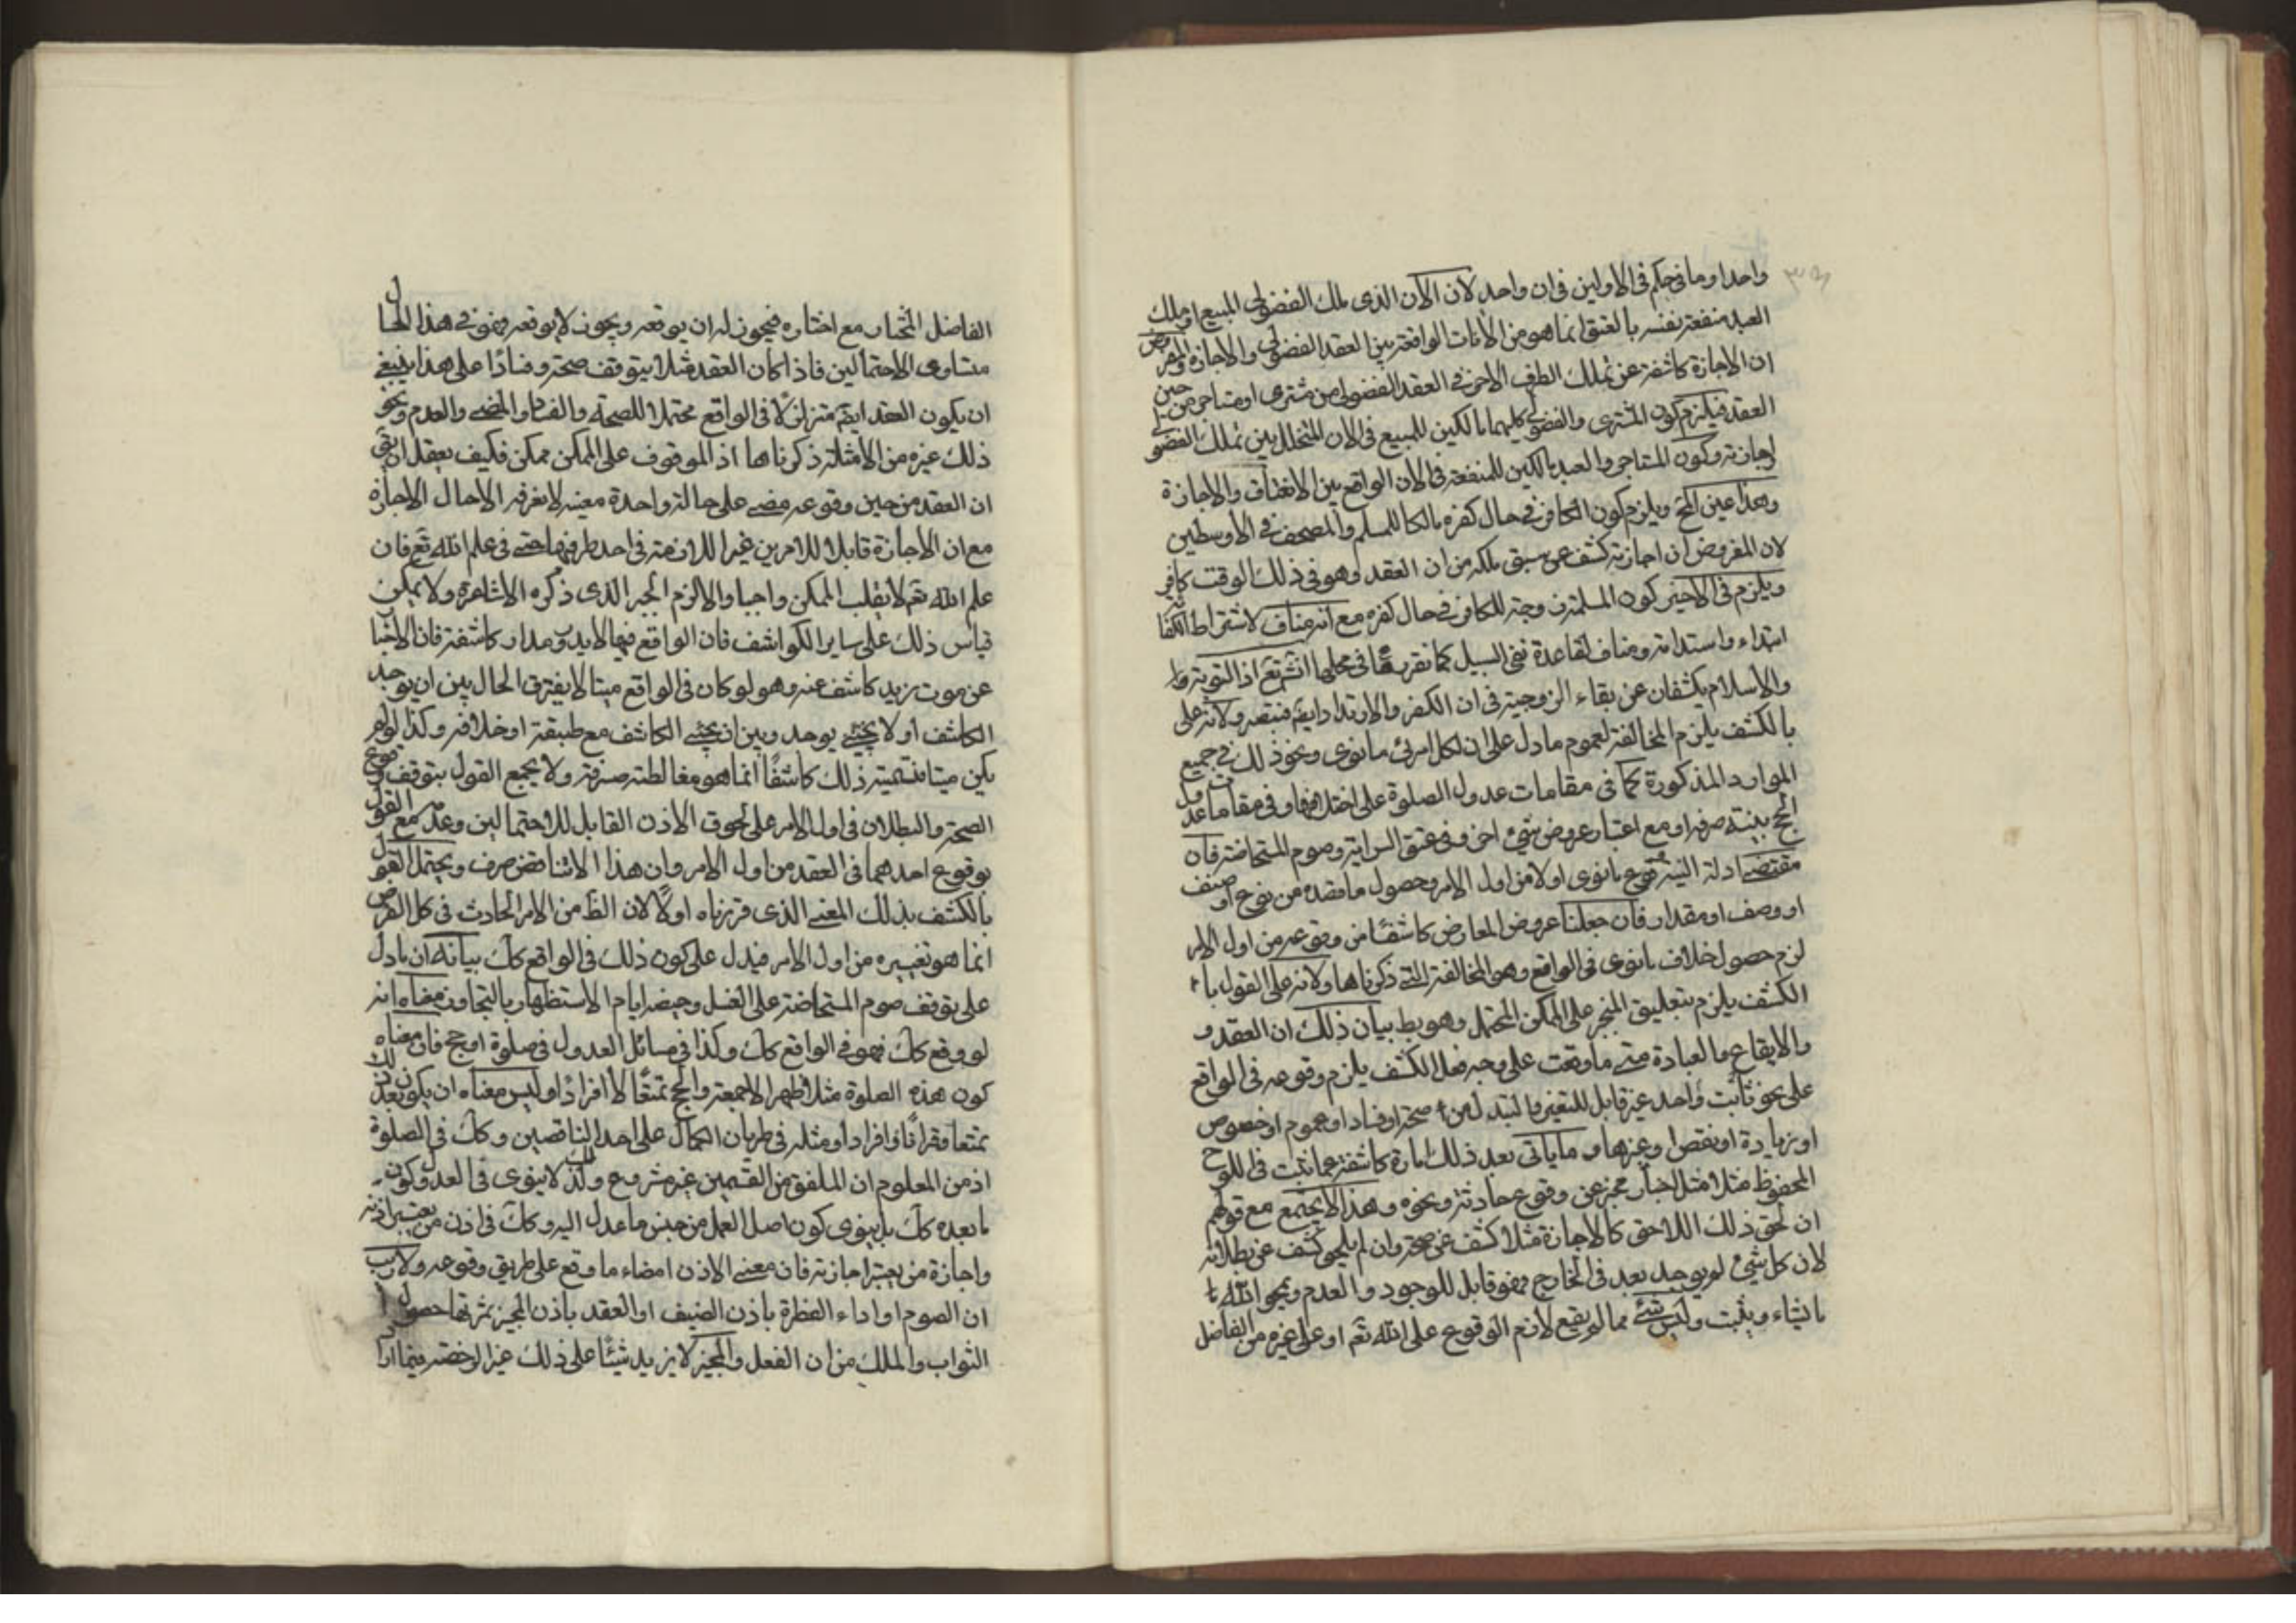 واحد او ما فی حکم فی الاولین فی ان واحد لان الآن الذی ملک الفضولی المبیع او ملک
العبد منفعة نفسه بالعتق انما هو من الانات الواقعة بین العقد الفضولی والاجازة والمفروض
ان الاجازة کاشفة عن تملک الطرف الاخر فی العقد الفضولی من مشتری او مستاجر من حین
العقد فیلزم کون المشتری والفضولی کلیهما مالکین للمبیع فی الان المتخلل بین تملک الفضولی
اجازته وکون المستاجر والعبد مالکین للمنفعة فی الان الواقع بین الانعتاق والاجازة
وهذا عین المح ویلزم کون الکافر فی حال کفره مالکا للمسلم والمصحف فی الاوسطین
لان المفروض ان اجازته کشف عن سبق ملکه من ان العقد وهو فی ذلک الوقت کافر
ویلزم فی الاخیر کون المسلمة زوجة للکافر فی حال کفره مع انه مناف لاشتراط الکفائة
ابتداء واستدامة ومناف لقاعدة نفی السبیل کما نقررها فی محلها انش تع اذ التوبة
والاسلام یکشفان عن بقاء الزوجیة فی ان الکفر والارتداد ایضم فتبصر ولانه علی
بالکشف یلزم المخالفة لعموم ما دل علی ان لکل امرئ ما نوی ونحو ذلک فی جمیع
الموارد المذکورة کما فی مقامات عدول الصلوة علی اختلافها وفی مقامات عدول
الحج بنیة صرفه او مع اعتبار عروض شیئ اخر وفی عتق السرایة وصوم المستحاضة فان
مقتضی ادلة النیة وقوع ما نوی اولا من اول الامر وحصول ما قصده من نوع او صنف
او وصف او مقدار فان جعلنا عروض العارض کاشفا من وقوعه من اول الامر
لزم حصول خلاف ما نوی فی الواقع وهو المخالفة التی ذکرناها ولانه علی القول با
الکشف یلزم تعلیق المنجز علی الممکن المحتمل وهو بط بیان ذلک ان العقد و
والایقاع والعبادة متی ما وقعت علی وجه فعل الکشف یلزم وقوعه فی الواقع
علی نحو ثابت واحد غیر قابل للتغیر والتبدل من صحة او فساد او عموم او خصوص
او زیادة او نقص وغیرها وما یاتی بعد ذلک امارة کاشفة عما ثبت فی اللوح
المحفوظ مثلا مثل اخبار مخبر عن وقوع حادثة ونحوه وهذا لا یجتمع مع قولهم
ان لحق ذلک اللاحق کالاجازة مثلا کشف عن صحته وان لم یلحق کشف عن بطلانه
لان کل شیئ لم یوجد بعد فی الخارج فهو قابل للوجود والعدم ویمحو الله ما
ما یشاء ویثبت ولیس شئ مما لم یقع لازم الوقوع علی الله تع او علی غیره من الفاضل
الفاضل المختار مع اختاره فیجوز له ان یوقعه ویجوز لا یوقعه فهو فی هذا الحال
متساوی الاحتمالین فاذا کان العقد مثلا یتوقف صحته وفساده علی هذا ینبغی
ان یکون العقد ایضم متزلزلا فی الواقع محتملا للصحة والفساد والمضی والعدم ونحو
ذلک غیره من الامثلة ذکرناها اذ الموقوف علی الممکن ممکن فکیف یعقل ان یقی
ان العقد من حین وقوعه مضی علی حالة واحدة معینة لا یعرفه الا حال الاجازة
مع ان الاجازة قابلا للامرین غیر اللازمة فی احد طرفیها حتی فی علم الله تع فان
علم الله تع لا یقلب الممکن واجبا والا لزم الجبر الذی ذکره الاشاعرة ولا یمکن
قیاس ذلک علی سایر الکواشف فان الواقع فیها لا یدور مدار کاشفه فان الاخبار
عن موت زید کاشف عنه وهو لو کان فی الواقع میتا لا یفترق الحال بین ان یوجد
الکاشف او لا یجیئ یوجد وبین ان یجیئ الکاشف مع طبقه او خلافه وکذا لو لم
یکن میتا فتسمیة ذلک کاشفا انما هو مغالطة صرفة ولا یجمع القول بتوقف وقوع
الصحة والبطلان فی اول الامر علی لحوق الاذن القابل للاحتمالین وعدمه مع القول
بوقوع احدهما فی العقد من اول الامر وان هذا الا تناقض صرف ویحتمل القول
بالکشف بذلک المعنی الذی قررناه اولا لان الظ من الامر الحادث فی کل الفرض
انما هو تغییره من اول الامر فیدل علی کون ذلک فی الواقع کک بیانه ان ما دل
علی توقف صوم المستحاضة علی الغسل وحیض ایام الاستظهار بالتجاوز معناه انه
لو وقع کک فهو فی الواقع کک وکذا فی مسائل العدول فی صلوة او حج فان معناه
کون هذه الصلوة مثلا ظهرا لا جمعة والحج تمتعا لا افرادا ولیس معناه ان یکون بعد ذلک
تمتعا وقرانا وافرادا ومثله فی طریان الکمال علی احد الناقصین وکک فی الصلوة
اذ من المعلوم ان الملفق من القسمین غیر مشروع ولذلک لا ینوی فی العدول کون
ما بعده کک بل ینوی کون اصل العمل من جنس ما عدل الیه وکک فی اذن من یعتبر اذنه
واجازة من یعتبر اجازته فان معنی الاذن امضاء ما وقع علی طریق وقوعه ولا ریب
ان الصوم او اداء الفطرة باذن الضیف او العقد باذن المجیز ثمرتها حصول
الثواب والملک من ان الفعل والمجیز لا یزید شیئا علی ذلک غیر الرخصة فیما